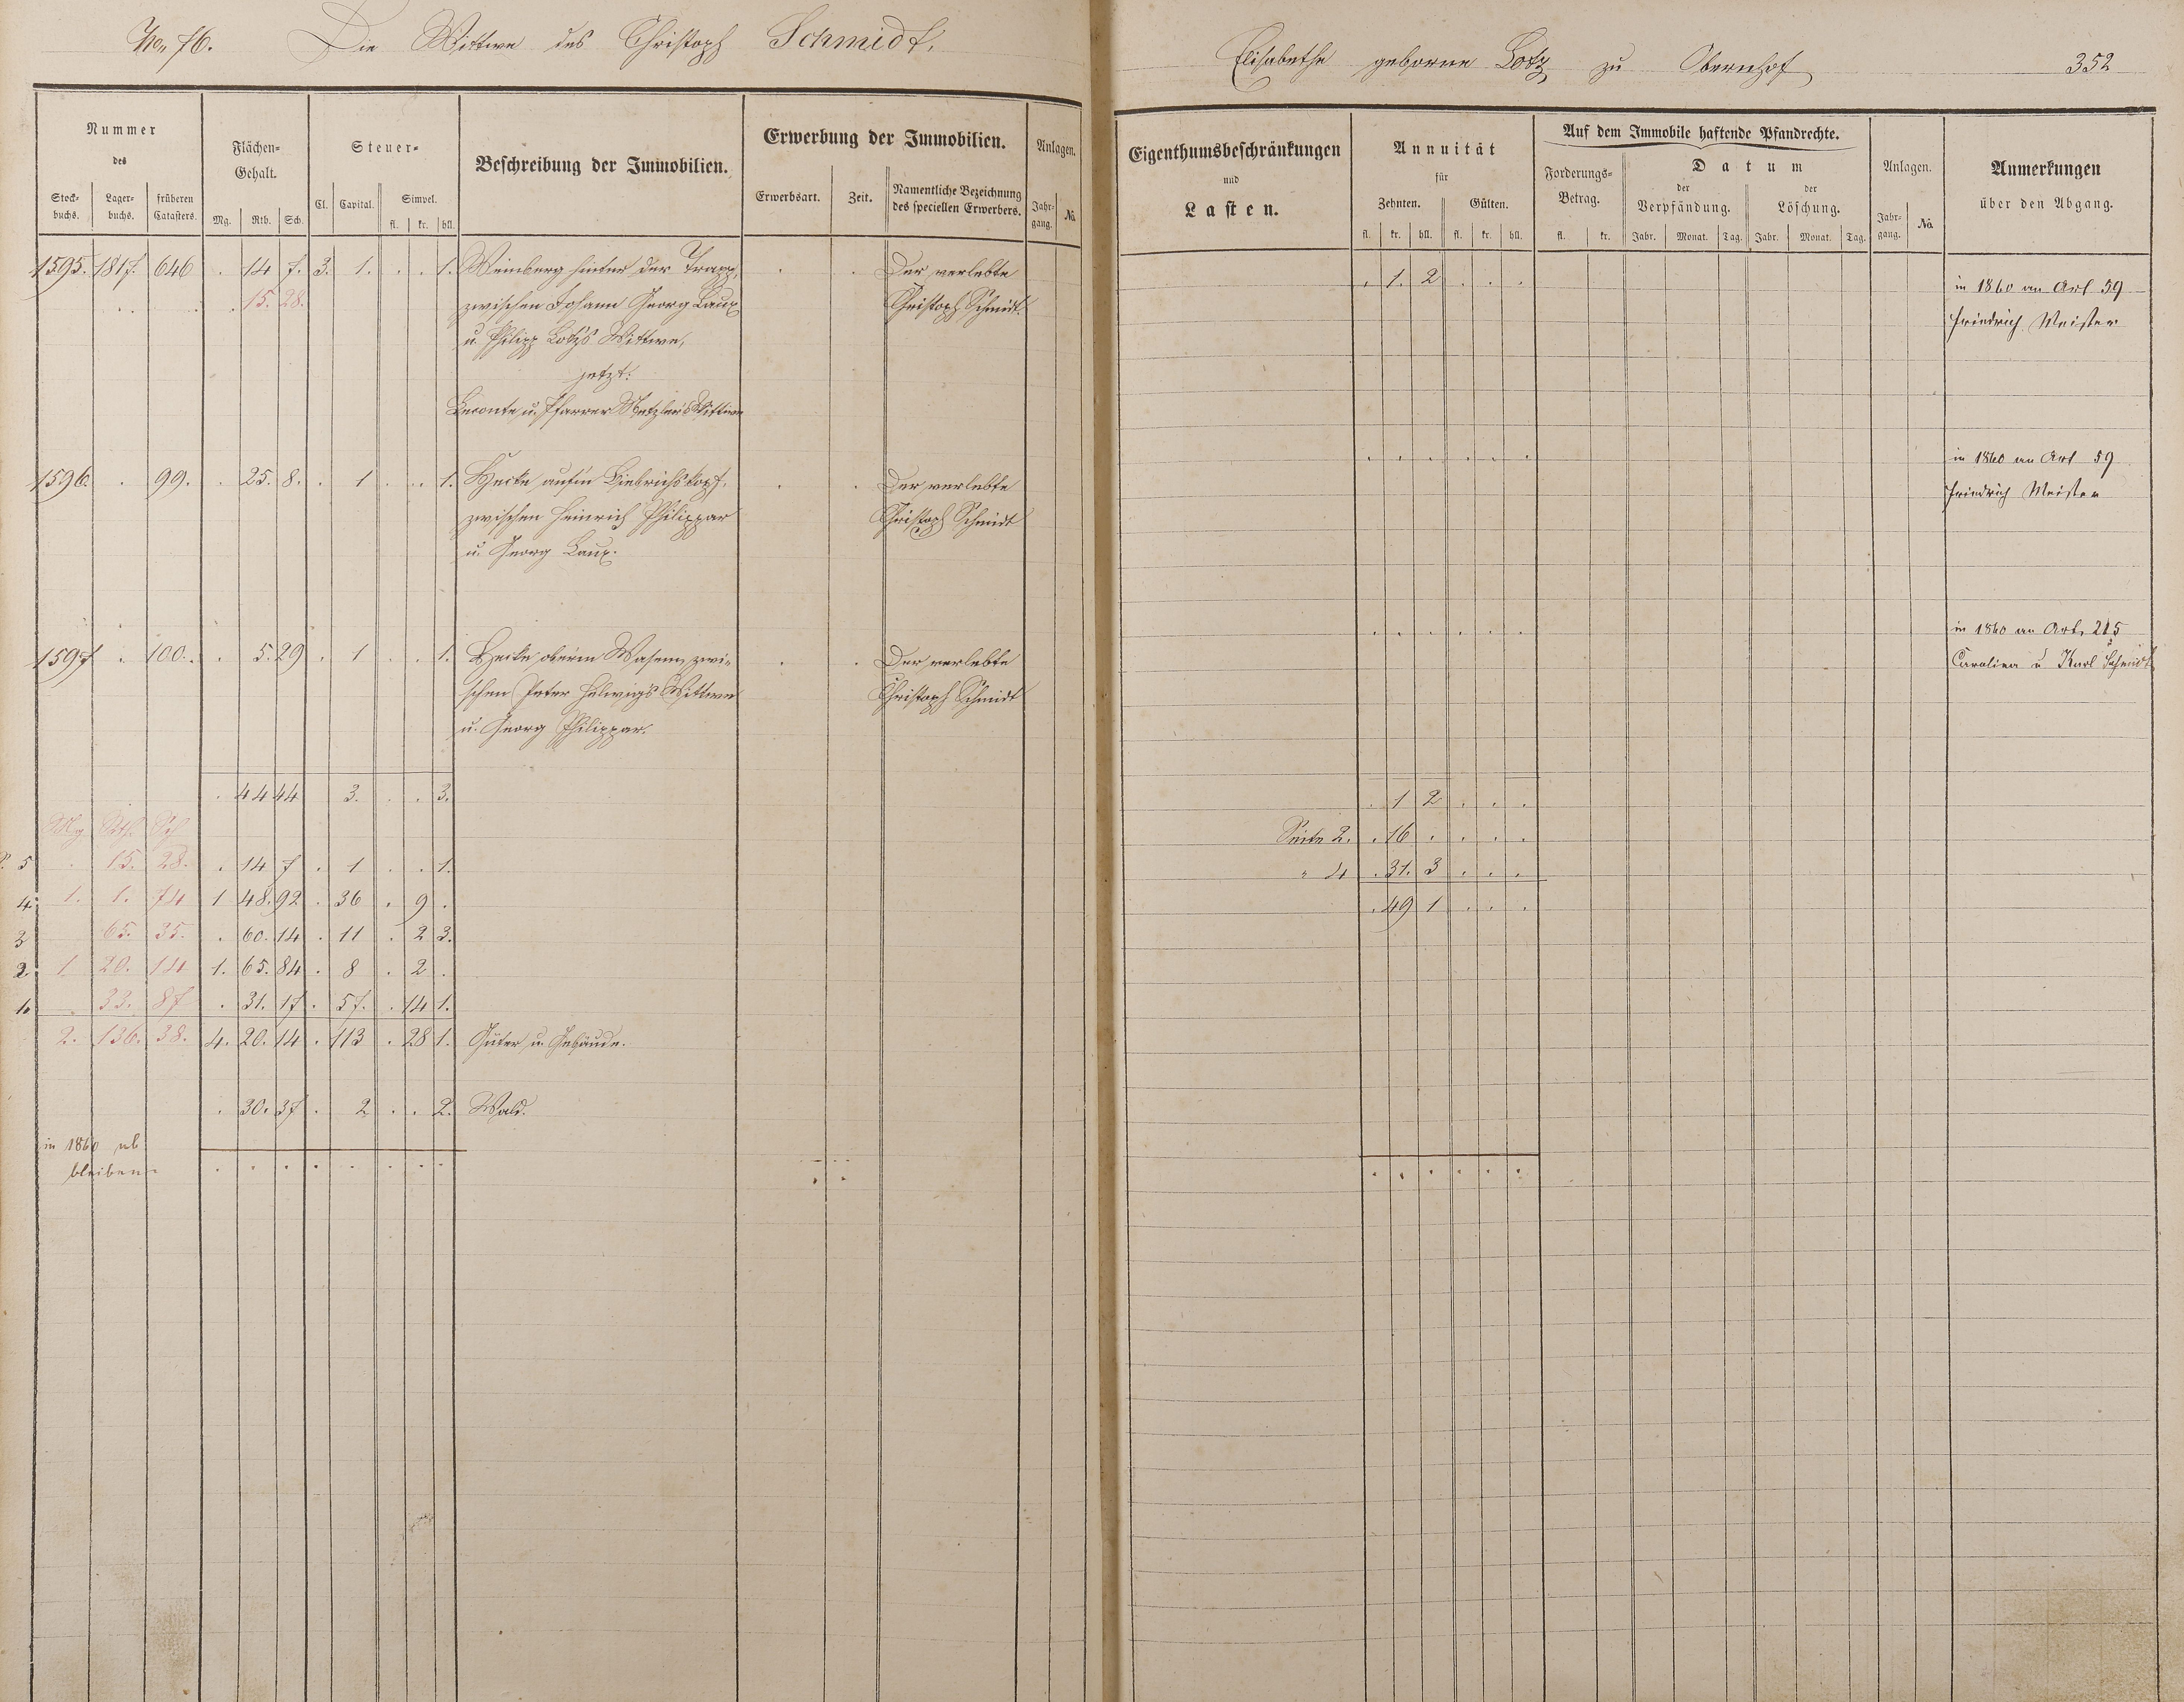 No. 76. Die Wittwe des Christoph Schmidt,
Elisabethe geborne Lotz zu Obernhof 352
Nummer
des
Stock-buchs. Lager-buchs. früheren Catasters.
Flächen-Gehalt.
Mg. Rth. Sch.
Steuer-
Cl. Capital. Simpel.
fl. kr. hll.
Beschreibung der Immobilien.
Erwerbung der Immobilien.
Erwerbsart. Zeit. Namentliche Bezeichnung des speciellen Erwerbers.
Anlagen.
Jahr-gang. No
Eigenthumsbeschränkungen
und
Lasten.
Annuität
für
Zehnten. Gülten.
fl. kr. hll. fl. kr. hll.
Auf dem Immobile haftende Pfandrechte.
Forderungs-Betrag.
fl. kr.
Datum
der Verpfändung. der Löschung.
Jahr. Monat. Tag. Jahr. Monat. Tag.
Anlagen.
Jahr-gang. No
Anmerkungen
über den Abgang.
1595. 1817. 646 . 14 7. 3. 1. . . 1. Weinberg hinter der Trapp, . . Der verlebte . 1. 2 . . . in 1860 an Art 59
. . . . 15. 28. zwischen Johann Georg Laux Christoph Schmidt. Friedrich Meister
u Philipp Lotz's Wittwe,
jetzt:
Leconte u. Pfarrer Metzler's Wittwe
1596. . 99. . 25. 8. . 1 . . 1. Hecke auf'm Liebrichskopf, . . Der verlebte . . . . . . in 1860 an Art 59
zwischen Heinrich Philippar Christoph Schmidt Friedrich Meister
u. Georg Laux.
1597 . 100. . 5. 29 . 1 . . 1. Hecke oberm Wasem, zwi- . . Der verlebte . . . . . . in 1860 an Art. 215
schen Peter Helwig's Wittwe Christoph Schmidt Carolina u Karl Schmidt
u. Georg Philippar.
. 44 44 3. . . 3. . 1 2 . . .
Mg Rth. Sch Seite 2. . 16 . . . .
S. 5 . 15. 28. . 14 7 . 1 . . 1. " 4 . 31. 3 . . .
4. 1. 1. 74 1 48. 92 . 36 . 9 . . 49 1 . . .
3 65. 35. . 60. 14 . 11 . 2 3.
2. 1. 20. 14 1. 65. 84 . 8 . 2 .
1. . 33. 87 . 31. 17 . 57. . 14 1.
2. 136. 38. 4. 20. 14 . 113 . 28 1. Güter u. Gebäude.
. 30. 37 . 2 . . 2. Wald.
in 1860 ab
bleiben . . . . . . . . . . . . . .